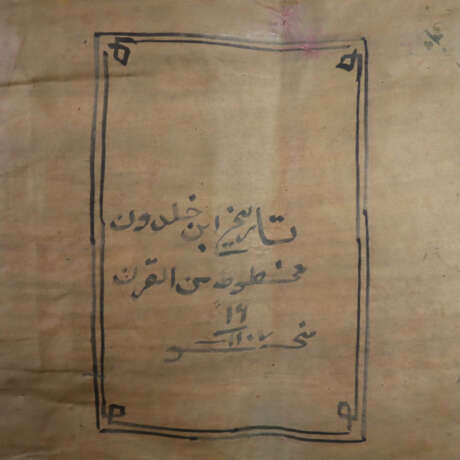 تاريخ ابن خلدون
مخطوط من القرن
١٩